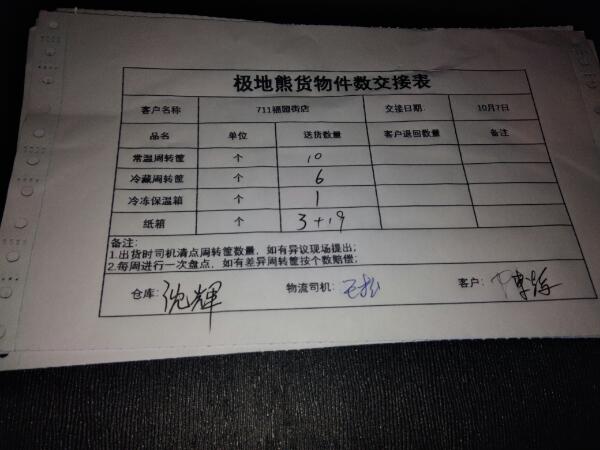 极地熊货物件数交接表
客户名称 711福园街店 交接日期: 10月7日
品名 单位 送货数量 客户退回数量 备注
常温周转筐 个 10
冷藏周转筐 个 6
冷冻保温箱 个 1
纸箱 个 3+19
备注:
1.出货时司机清点周转筐数量，如有异议现场提出;
2.每周进行一次盘点，如有差异周转筐按个数赔偿;
仓库: 沈辉 物流司机: 王松 客户: